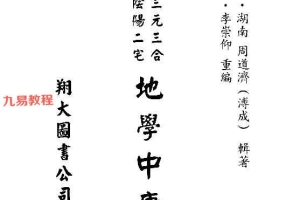 ・湖南 周道濟（溥成） 輯著
・李崇仰 重編
三元三合
陰陽二宅
地學中庸
翔大圖書公司
九易教程